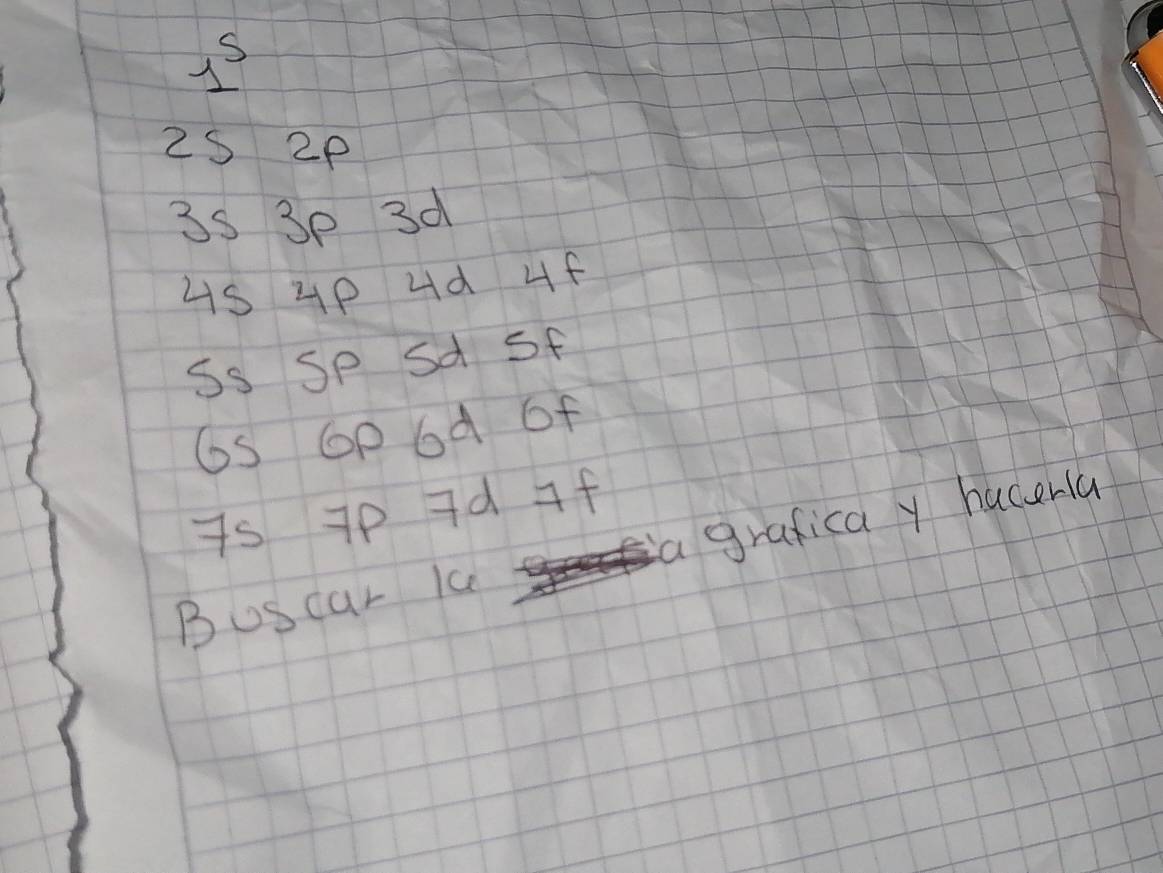 1s
2s 2p
3s 3p 3d
4s 4p 4d 4f
5s 5p 5d 5f
6s 6p 6d 6f
7s 7p 7d 7f
Buscar la grafica y hacerla